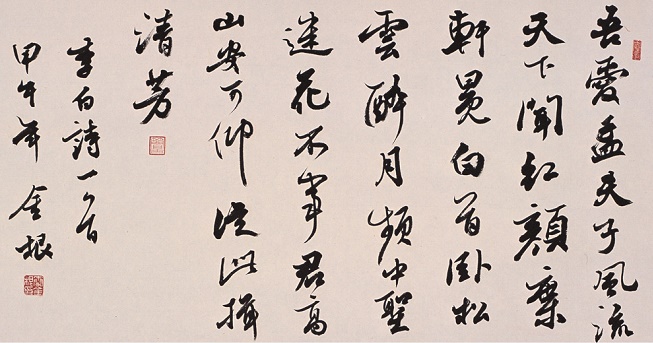 吾愛孟夫子風流
天下聞紅顏棄
軒冕白首臥松
雲醉月頻中聖
迷花不事君高
山安可仰從此揖
清芬
李白詩一首
甲午年 金根